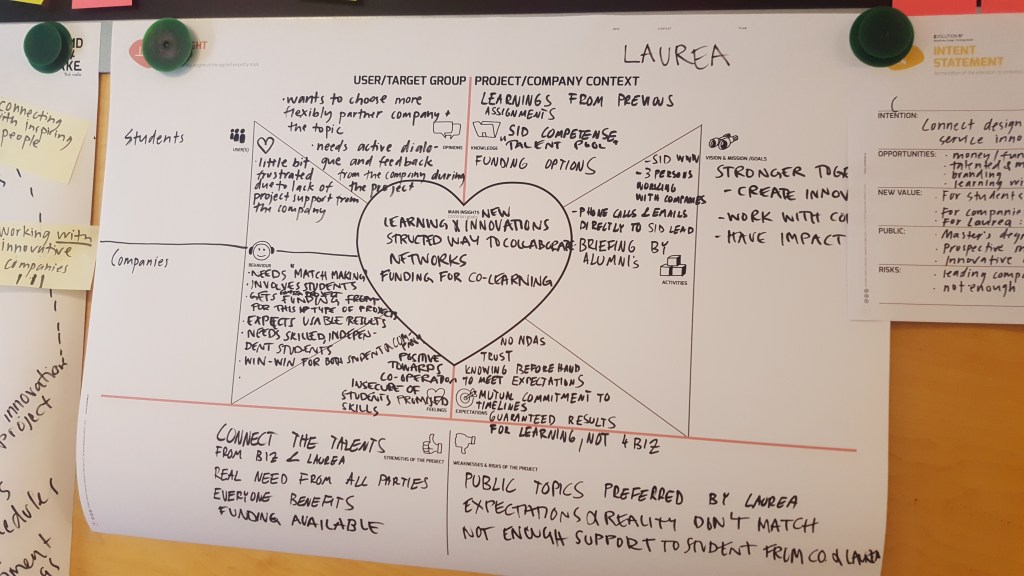 LAUREA
USER/TARGET GROUP
PROJECT/COMPANY CONTEXT
Students
Companies
USER(S)
· wants to choose more
flexibly partner company +
the topic
OPINIONS
· needs active dialo-
gue and feedback
from the company during
the project
· little bit
frustrated
due to lack of
project support from
the company
LEARNINGS FROM PREVIOUS
ASSIGNMENTS
KNOWLEDGE
SID COMPETENSE
"TALENT POOL"
FUNDING OPTIONS
MAIN INSIGHTS
NEW
LEARNING & INNOVATIONS
STRUCTED WAY TO COLLABORATE
NETWORKS
FUNDING FOR CO-LEARNING
- SID WWW
- 3 PERSONS
WORKING
WITH COMPANIES
- PHONE CALLS & EMAILS
DIRECTLY TO SID LEAD
- BRIEFING BY
ALUMNI'S
ACTIVITIES
VISION & MISSION /GOALS
STRONGER TOGE
- CREATE INNOV
- WORK WITH CO
- HAVE IMPACT
BEHAVIOUR
· NEEDS "MATCH MAKING"
· INVOLVES STUDENTS
· GETS FUNDING FROM
FOR THIS TYPE OF PROJECTS
· EXPECTS USABLE RESULTS
· NEEDS SKILLED, INDEPEN-
DENT STUDENTS
· WIN-WIN FOR BOTH STUDENT &
POSITIVE
TOWARDS
CO-OPERATION
INSECURE OF
STUDENTS PROMISED
SKILLS
FEELINGS
EXPECTATIONS
NO NDAS
TRUST
KNOWING BEFORE HAND
TO MEET EXPECTATIONS
MUTUAL COMMITMENT TO
TIMELINES
GUARANTEED RESULTS
FOR LEARNING, NOT 4 BIZ
CONNECT THE TALENTS
FROM BIZ & LAUREA
STRENGTHS OF THE PROJECT
REAL NEED FROM ALL PARTIES
EVERYONE BENEFITS
FUNDING AVAILABLE
WEAKNESSES & RISKS OF THE PROJECT
PUBLIC TOPICS PREFERRED BY LAUREA
EXPECTATIONS & REALITY DON'T MATCH
NOT ENOUGH SUPPORT TO STUDENT FROM CO & LAUREA
connecting
with inspiring
people
working with
innovative
companies
!!!
innovation
project
INTENT
STATEMENT
INTENTION:
Connect design
service inno
OPPORTUNITIES:
· money/fun
· talented & m
· branding
· learning wi
NEW VALUE:
· For students
· For companie
· For Laurea:
PUBLIC:
· Master's degr
· Prospective m
· Innovative
RISKS:
· leading compa
· not enough